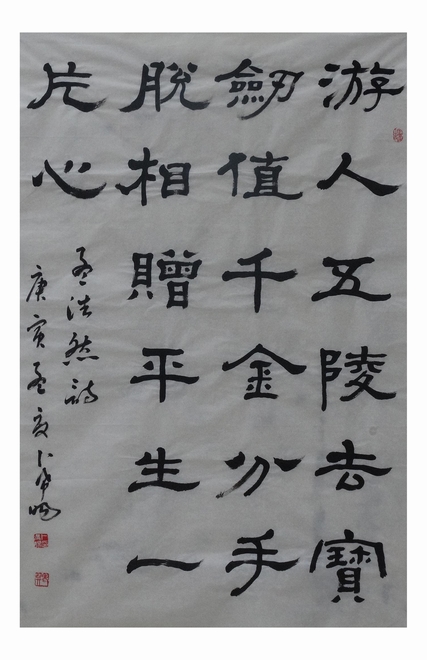 游人五陵去寶
劒值千金分手
脫相贈平生一
片心
孟浩然詩
庚寅孟夏卜希旸